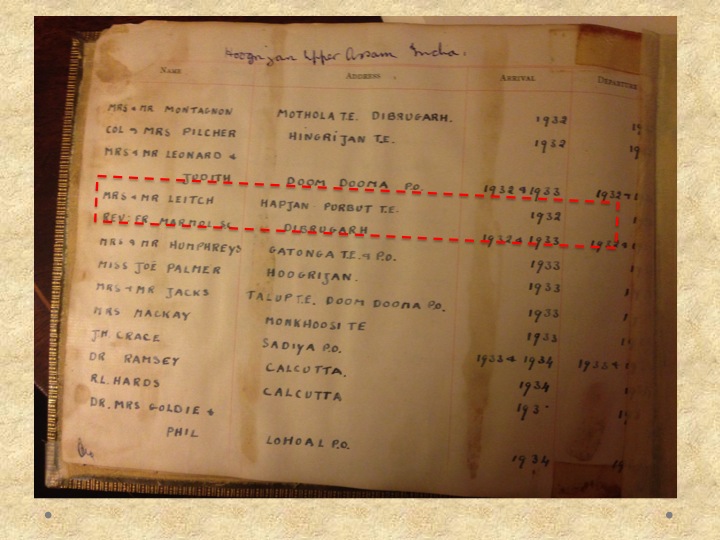 Hoogrijan Upper Assam India.
NAME ADDRESS ARRIVAL DEPARTURE
MRS & MR MONTAGNON MOTHOLA T.E. DIBRUGARH. 1932
COL & MRS PILCHER HINGRIJAN T.E. 1932
MRS & MR LEONARD &
JUDITH DOOM DOOMA P.O. 1932 & 1933 1932 &
MRS & MR LEITCH HAPJAN PURBUT T.E. 1932
REV: FR DIBRUGARH 1932 & 1933 1932 &
MRS & MR HUMPHREYS GATONGA T.E. & P.O. 1933
MISS JOË PALMER HOOGRIJAN. 1933
MRS & MR JACKS TALUP T.E. DOOM DOOMA P.O. 1933
MRS MACKAY MONKHOOSI TE 1933
JM CRACE SADIYA P.O. 1933 & 1934 1933 &
DR RAMSEY CALCUTTA. 1934
R.L. HARDS CALCUTTA 193
DR. MRS GOLDIE &
PHIL LOHOAL P.O. 1934